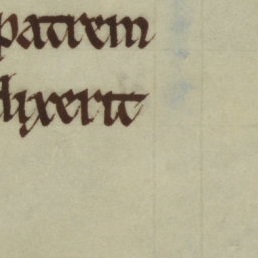 patrem
dixerit